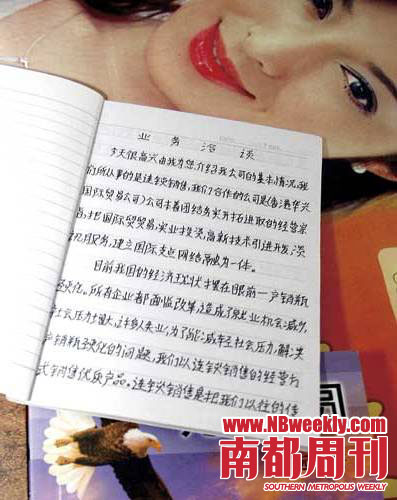 业务洽谈
今天很高兴由我为您介绍我公司的基本情况,我
们所从事的是连锁销售,我们合作的公司是(香港华兴
国际贸易公司)公司本着团结务实开拓进取的经营宗
旨,把国际贸易,实业投资,高新技术引进开发,
服务,建立国际支点网络融为一体。
目前我国的经济现状摆在眼前一产销新
恶化。所有企业都面临改革,造成了就业机会减少,
社会压力增大,这多人失业,为了能减轻社会压力,解决
产销新恶化的问题,我们以连锁销售的经营方
式销售优质产品。连锁销售是把我们以往的传
www.NBweekly.com
南都周刊
SOUTHERN METROPOLIS WEEKLY